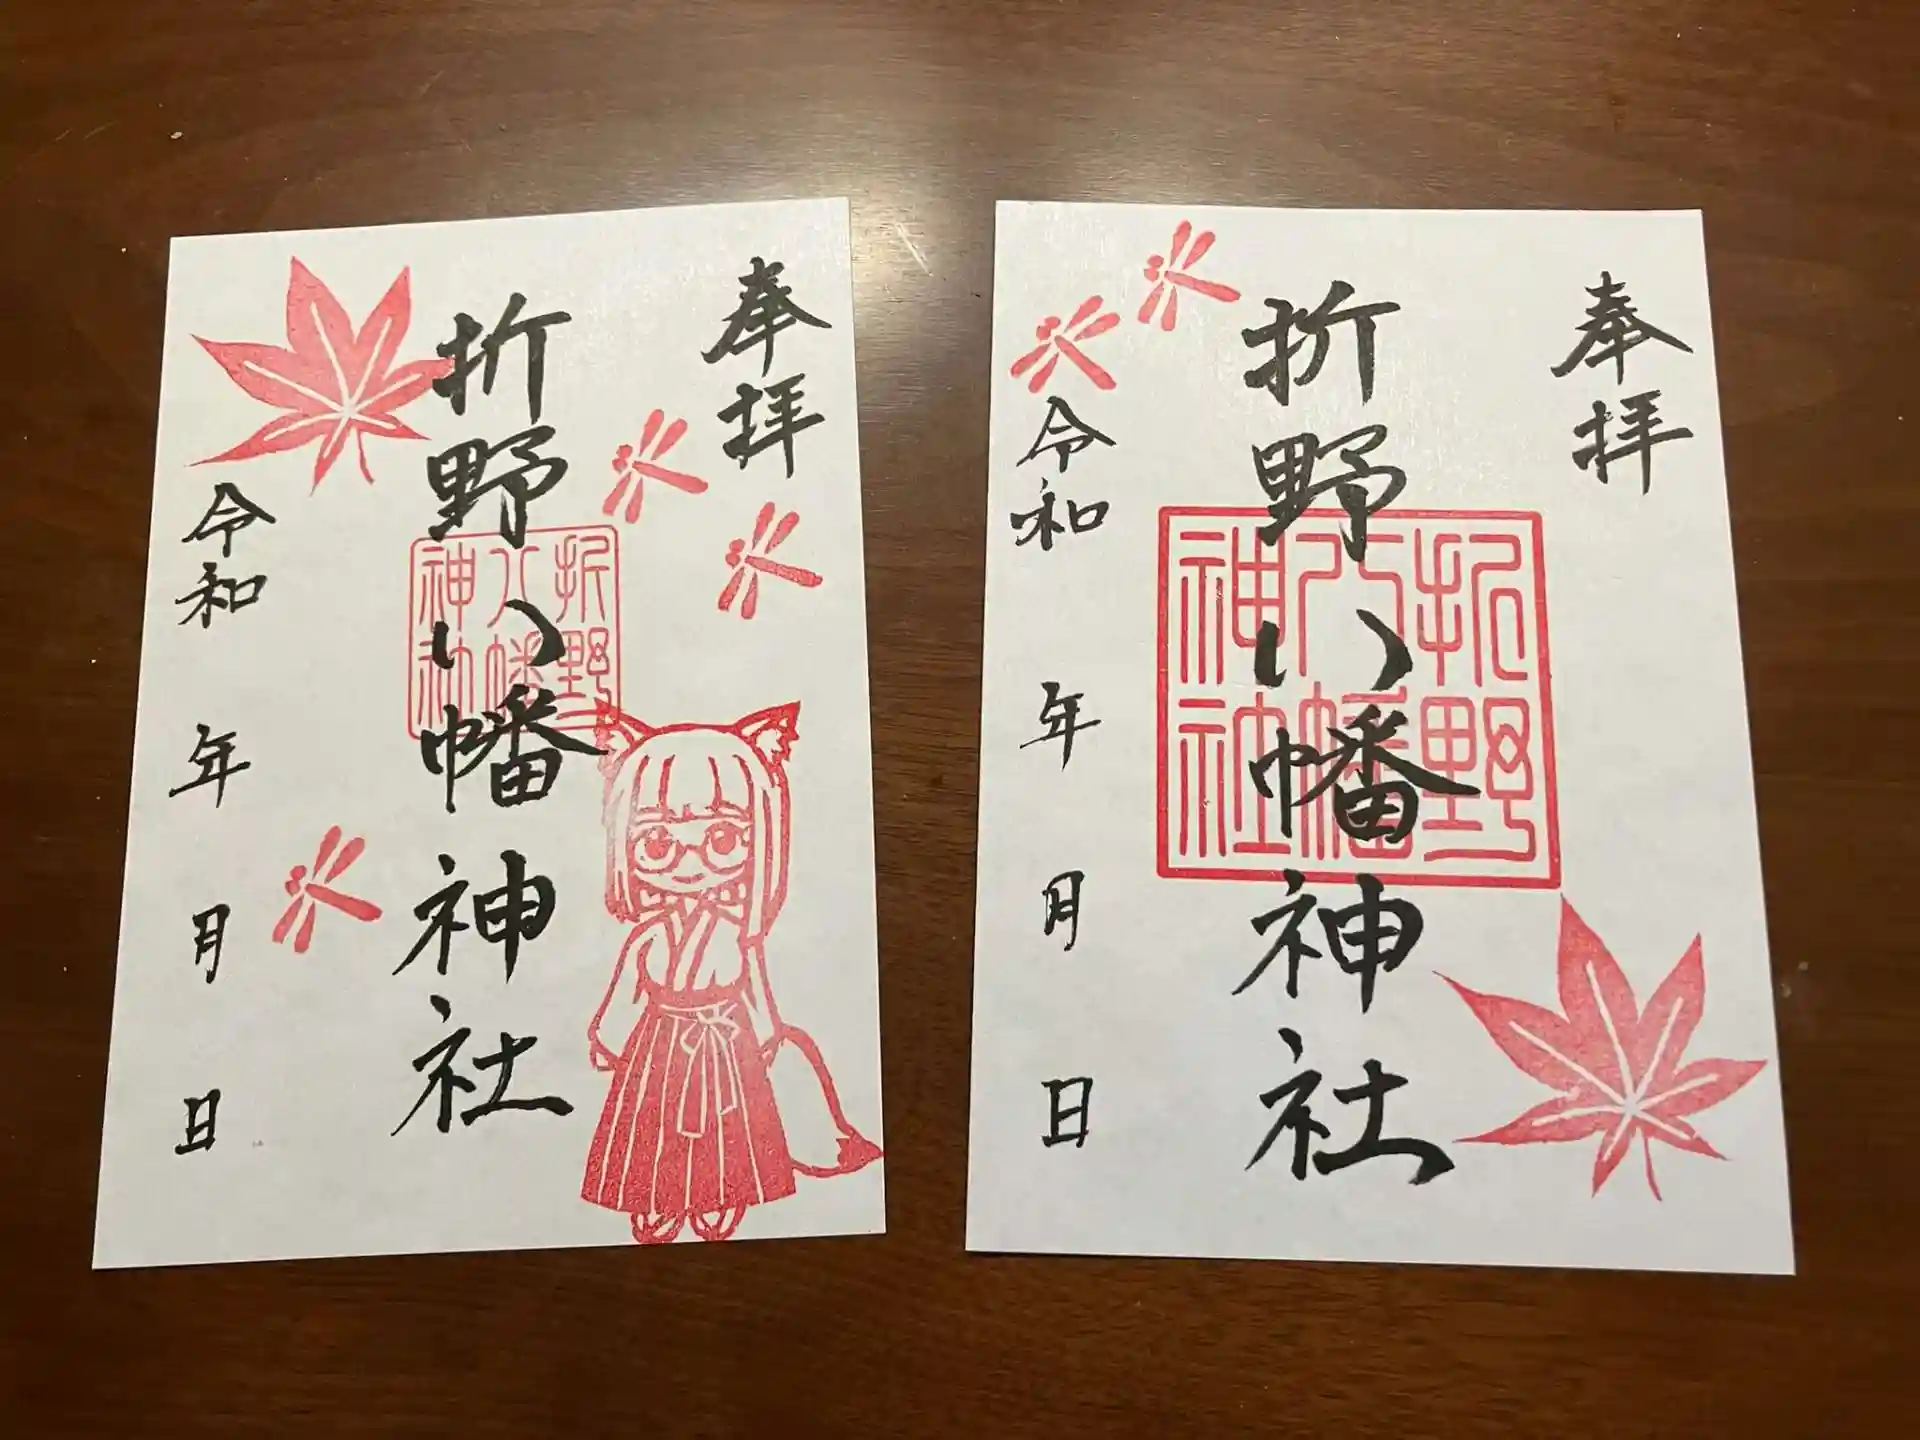 奉拝
折野八幡神社
折野
八幡
神社
令和 年 月 日
奉拝
折野八幡神社
折野
八幡
神社
令和 年 月 日